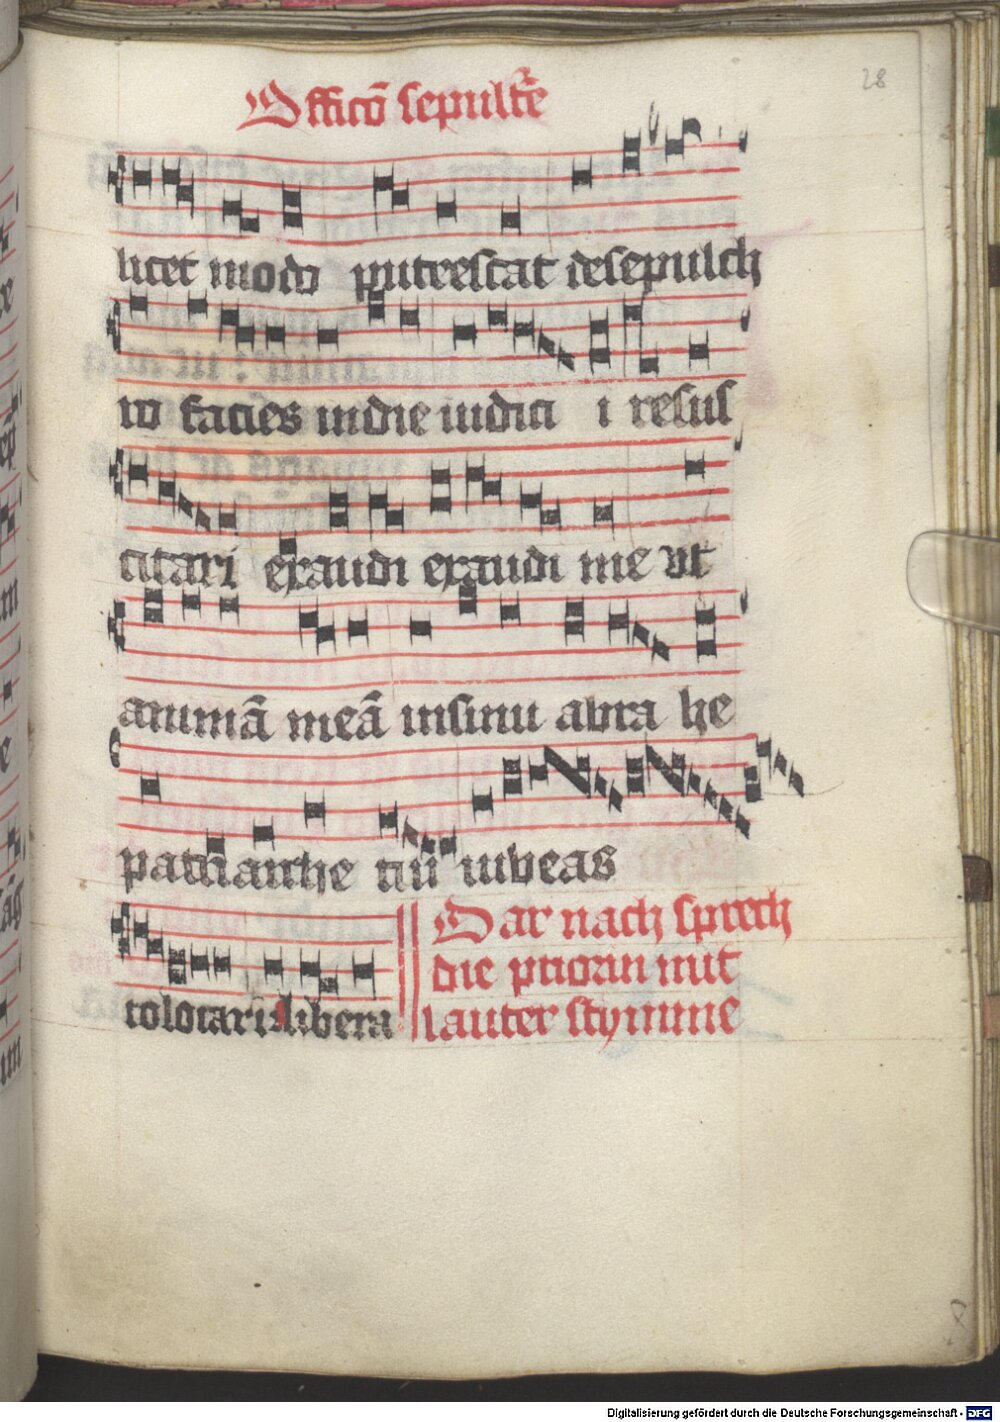 28
Officō sepultr̄e
licet modo putrescat de sepulch
ro facies in die iudici i resus
citari exaudi exaudi me ut
animā meā in sinu abra he
patriarche tui iubeas
colocari libera
Dar nach sprech
die priorin mit
lauter stymme
Digitalisierung gefördert durch die Deutsche Forschungsgemeinschaft - DFG